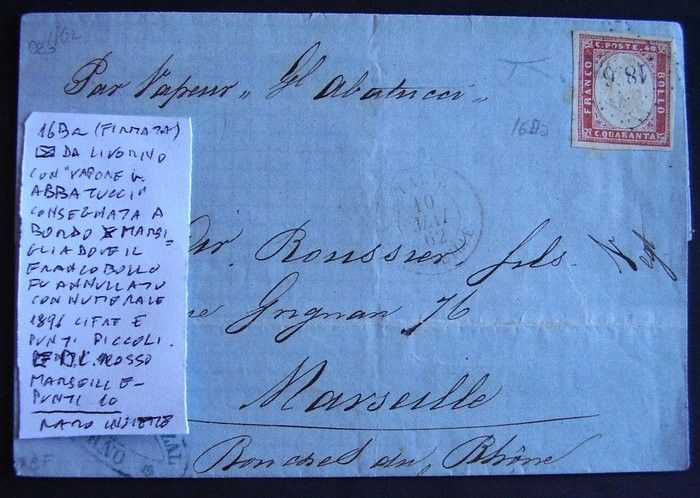 1862
Par Vapeur „ Gl Abatucci "
C. POSTE. 40
FRANCO
BOLLO
C. QUARANTA
18 6
16Da
16Da (FIRMATA)
DA LIVORNO
CON "VAPORE G.
ABBATUCCI"
CONSEGNATA A
BORDO X MARSI=
GLIA DOVE IL
FRANCOBOLLO
FU ANNULLATO
CON NUMERALE
1896 CIFRE E
PUNTI PICCOLI.
ROSSO
MARSEILLE-
PUNTI 10
RARO INSIEME
10
62
Roussier, fils.
Grignan 76
Marseille
Bouches du Rhône